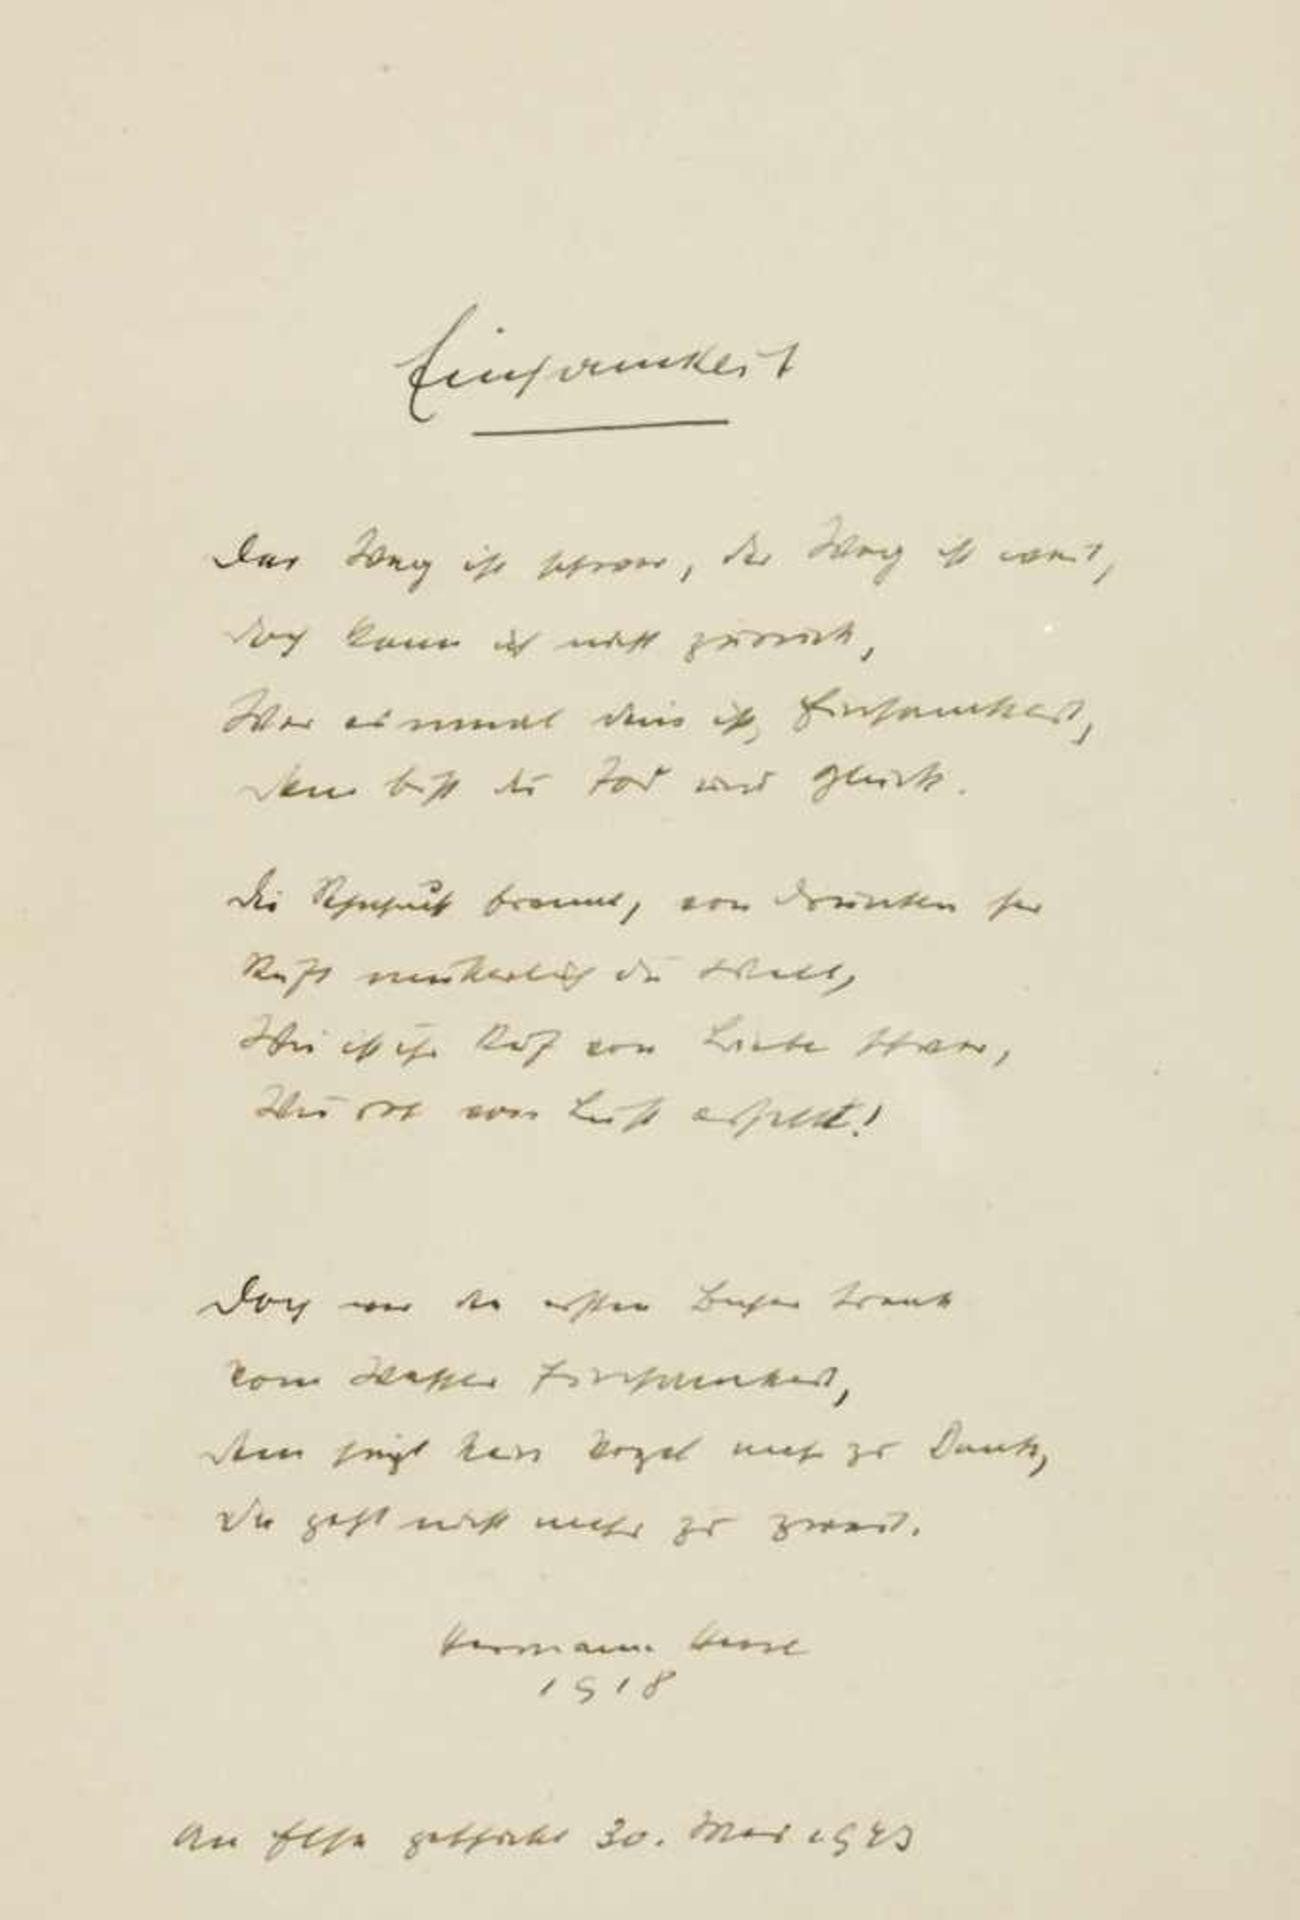 Einsamkeit
Der Weg ist schwer, der Weg ist weit,
doch kann ich nicht zurück,
Wer einmal dein ist, Einsamkeit,
dem bist du Tod und Glück.
Die Sehnsucht brennt, von drunten her
Ruft mütterlich die Welt,
Wie ist ihr Ruf von Liebe schwer,
Wie rot von Lust erhellt!
Doch wer den ersten Becher trank
Vom Wasser Einsamkeit,
dem singt kein Vogel mehr zu Dank,
der geht nicht mehr zu zweit.
Hermann Hesse
1918
An Elsa geschickt 30. Mai 1943